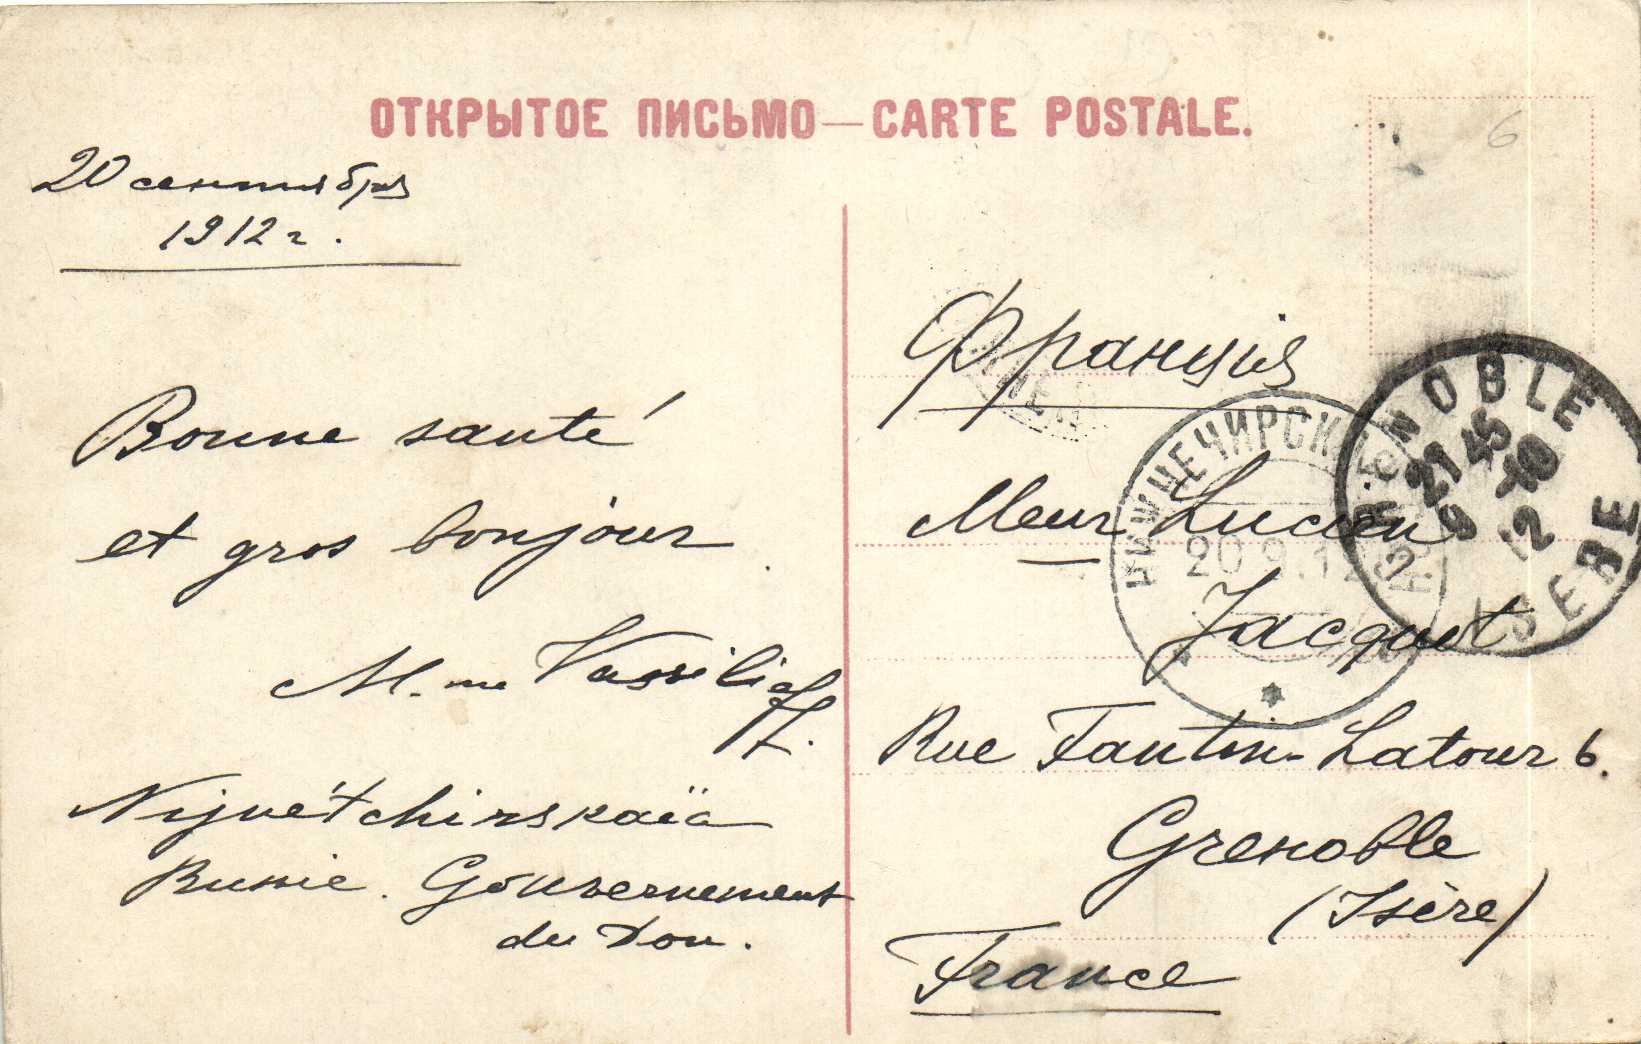 ОТКРЫТОЕ ПИСЬМО — CARTE POSTALE.
6
20 сентября
1912 г.
Bonne santé
et gros bonjour.
M.me Vassilieff.
Nijnétchirskaïa
Russie. Gouvernement
du Don.
Франція
Meur Lucien
Jacquet
Rue Fantin-Latour 6.
Grenoble
(Isère)
France
НИЖНЕЧИРСК
20.9.12
GRENOBLE
21 45
9 10
12
ISERE